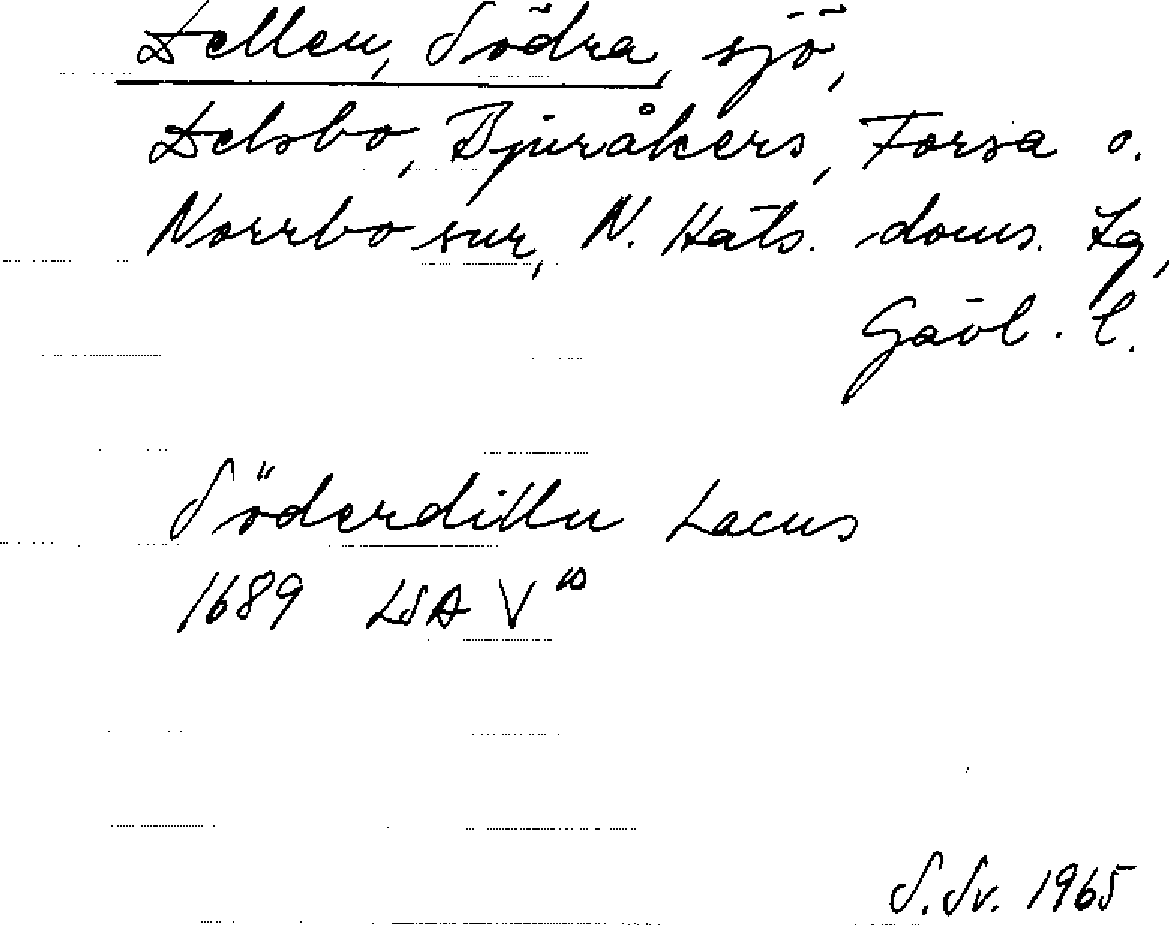 Dellen, Södra, sjö,
Delsbo, Bjuråkers, Forsa o.
Norrbo snr, N. Häls. doms. Lg,
Gävl. l.
Söderdillu Lacus
1689 LSA V
S. Sv. 1965